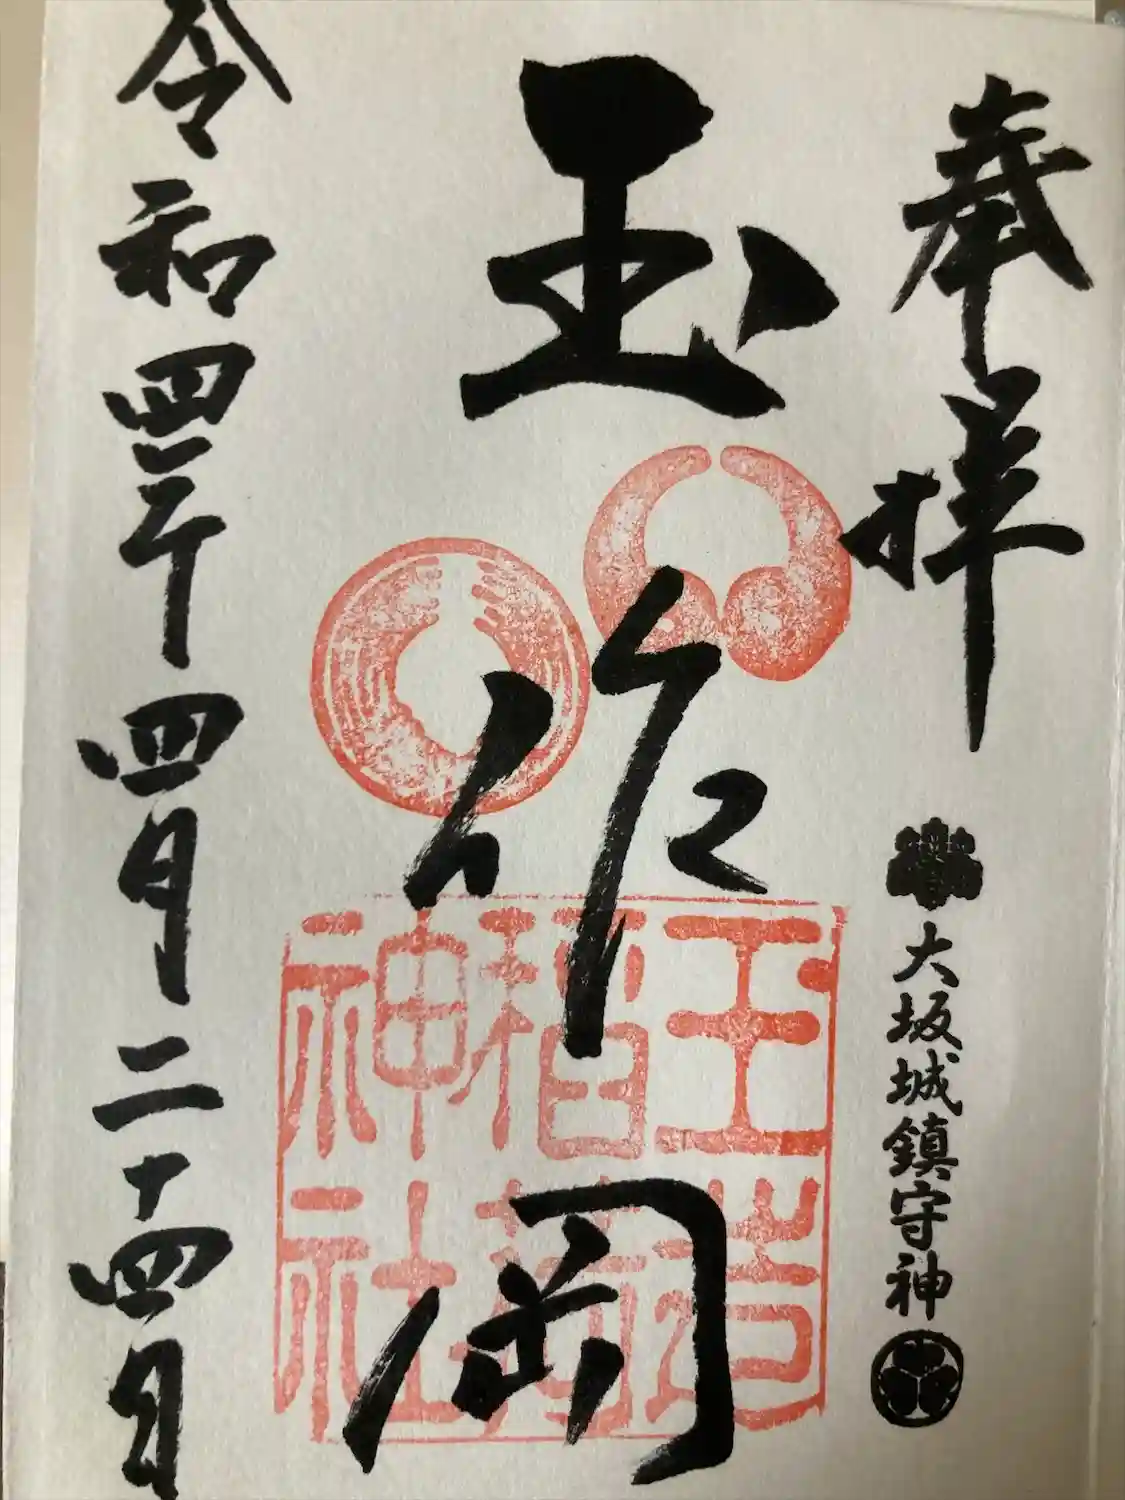 奉拝
大坂城鎮守神
玉作岡
玉造
稲荷
神社
令和四年四月二十四日